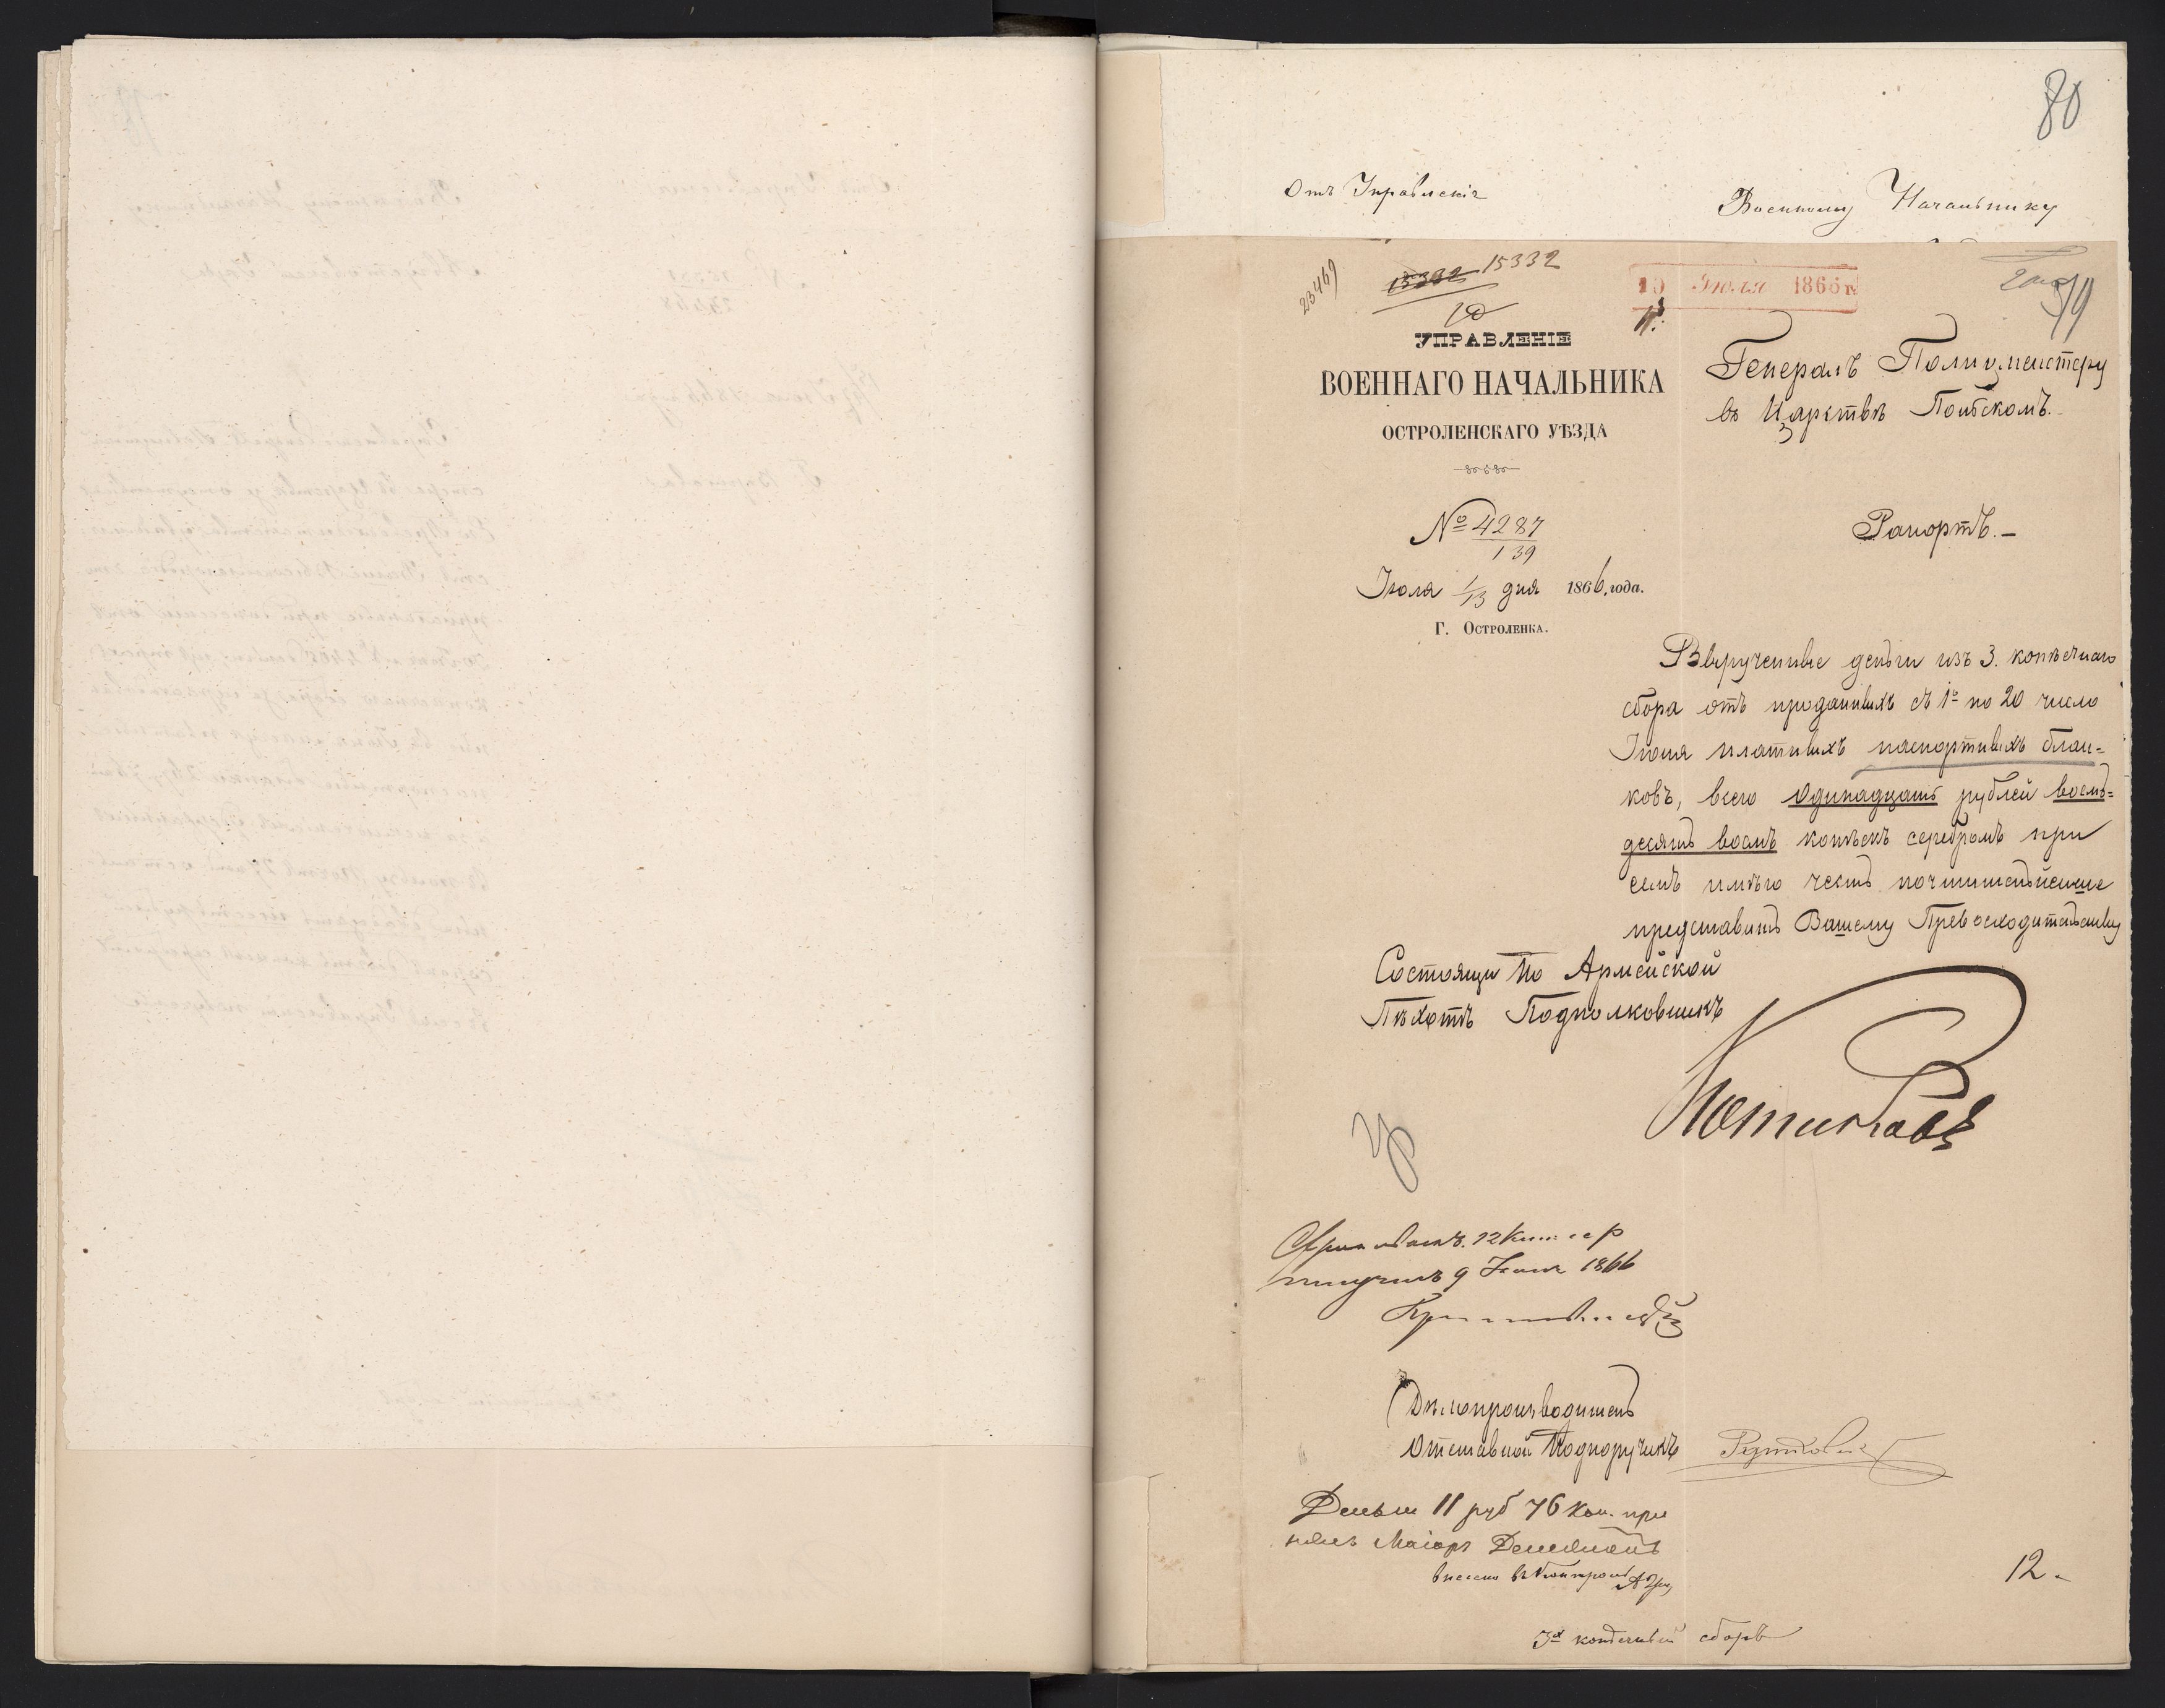 80
Отъ Управленія
Военному Начальнику
23469
15332
15332
10
10 Июля 1866 г.
79
УПРАВЛЕНІЕ
ВОЕННАГО НАЧАЛЬНИКА
ОСТРОЛЕНСКАГО УѢЗДА
№ 4287
139
Іюля 1/13 дня 1866 года.
Г. Остроленка.
Генералъ Полицмейстеру
въ Царствѣ Польскомъ.
Рапортъ.
Вырученные деньги изъ 3. копѣечнаго
сбора отъ проданныхъ съ 1го по 20 число
Іюня платныхъ паспортныхъ блан=
ковъ, всего одинадцать рублей восемь=
десятъ восемь копѣекъ серебромъ при
семъ имѣю честь почтительнейше
представить Вашему Превосходительству
Состоящи по Армейской
Пѣхотѣ Подполковникъ
12 Коп сер
получилъ 9 1866
Дѣлопроизводитель
Отставной Подпоручикъ
Деньги 11 руб 76 коп. при
нялъ Маіоръ
внесено въ Контроль
12.
3х копѣечный сборъ